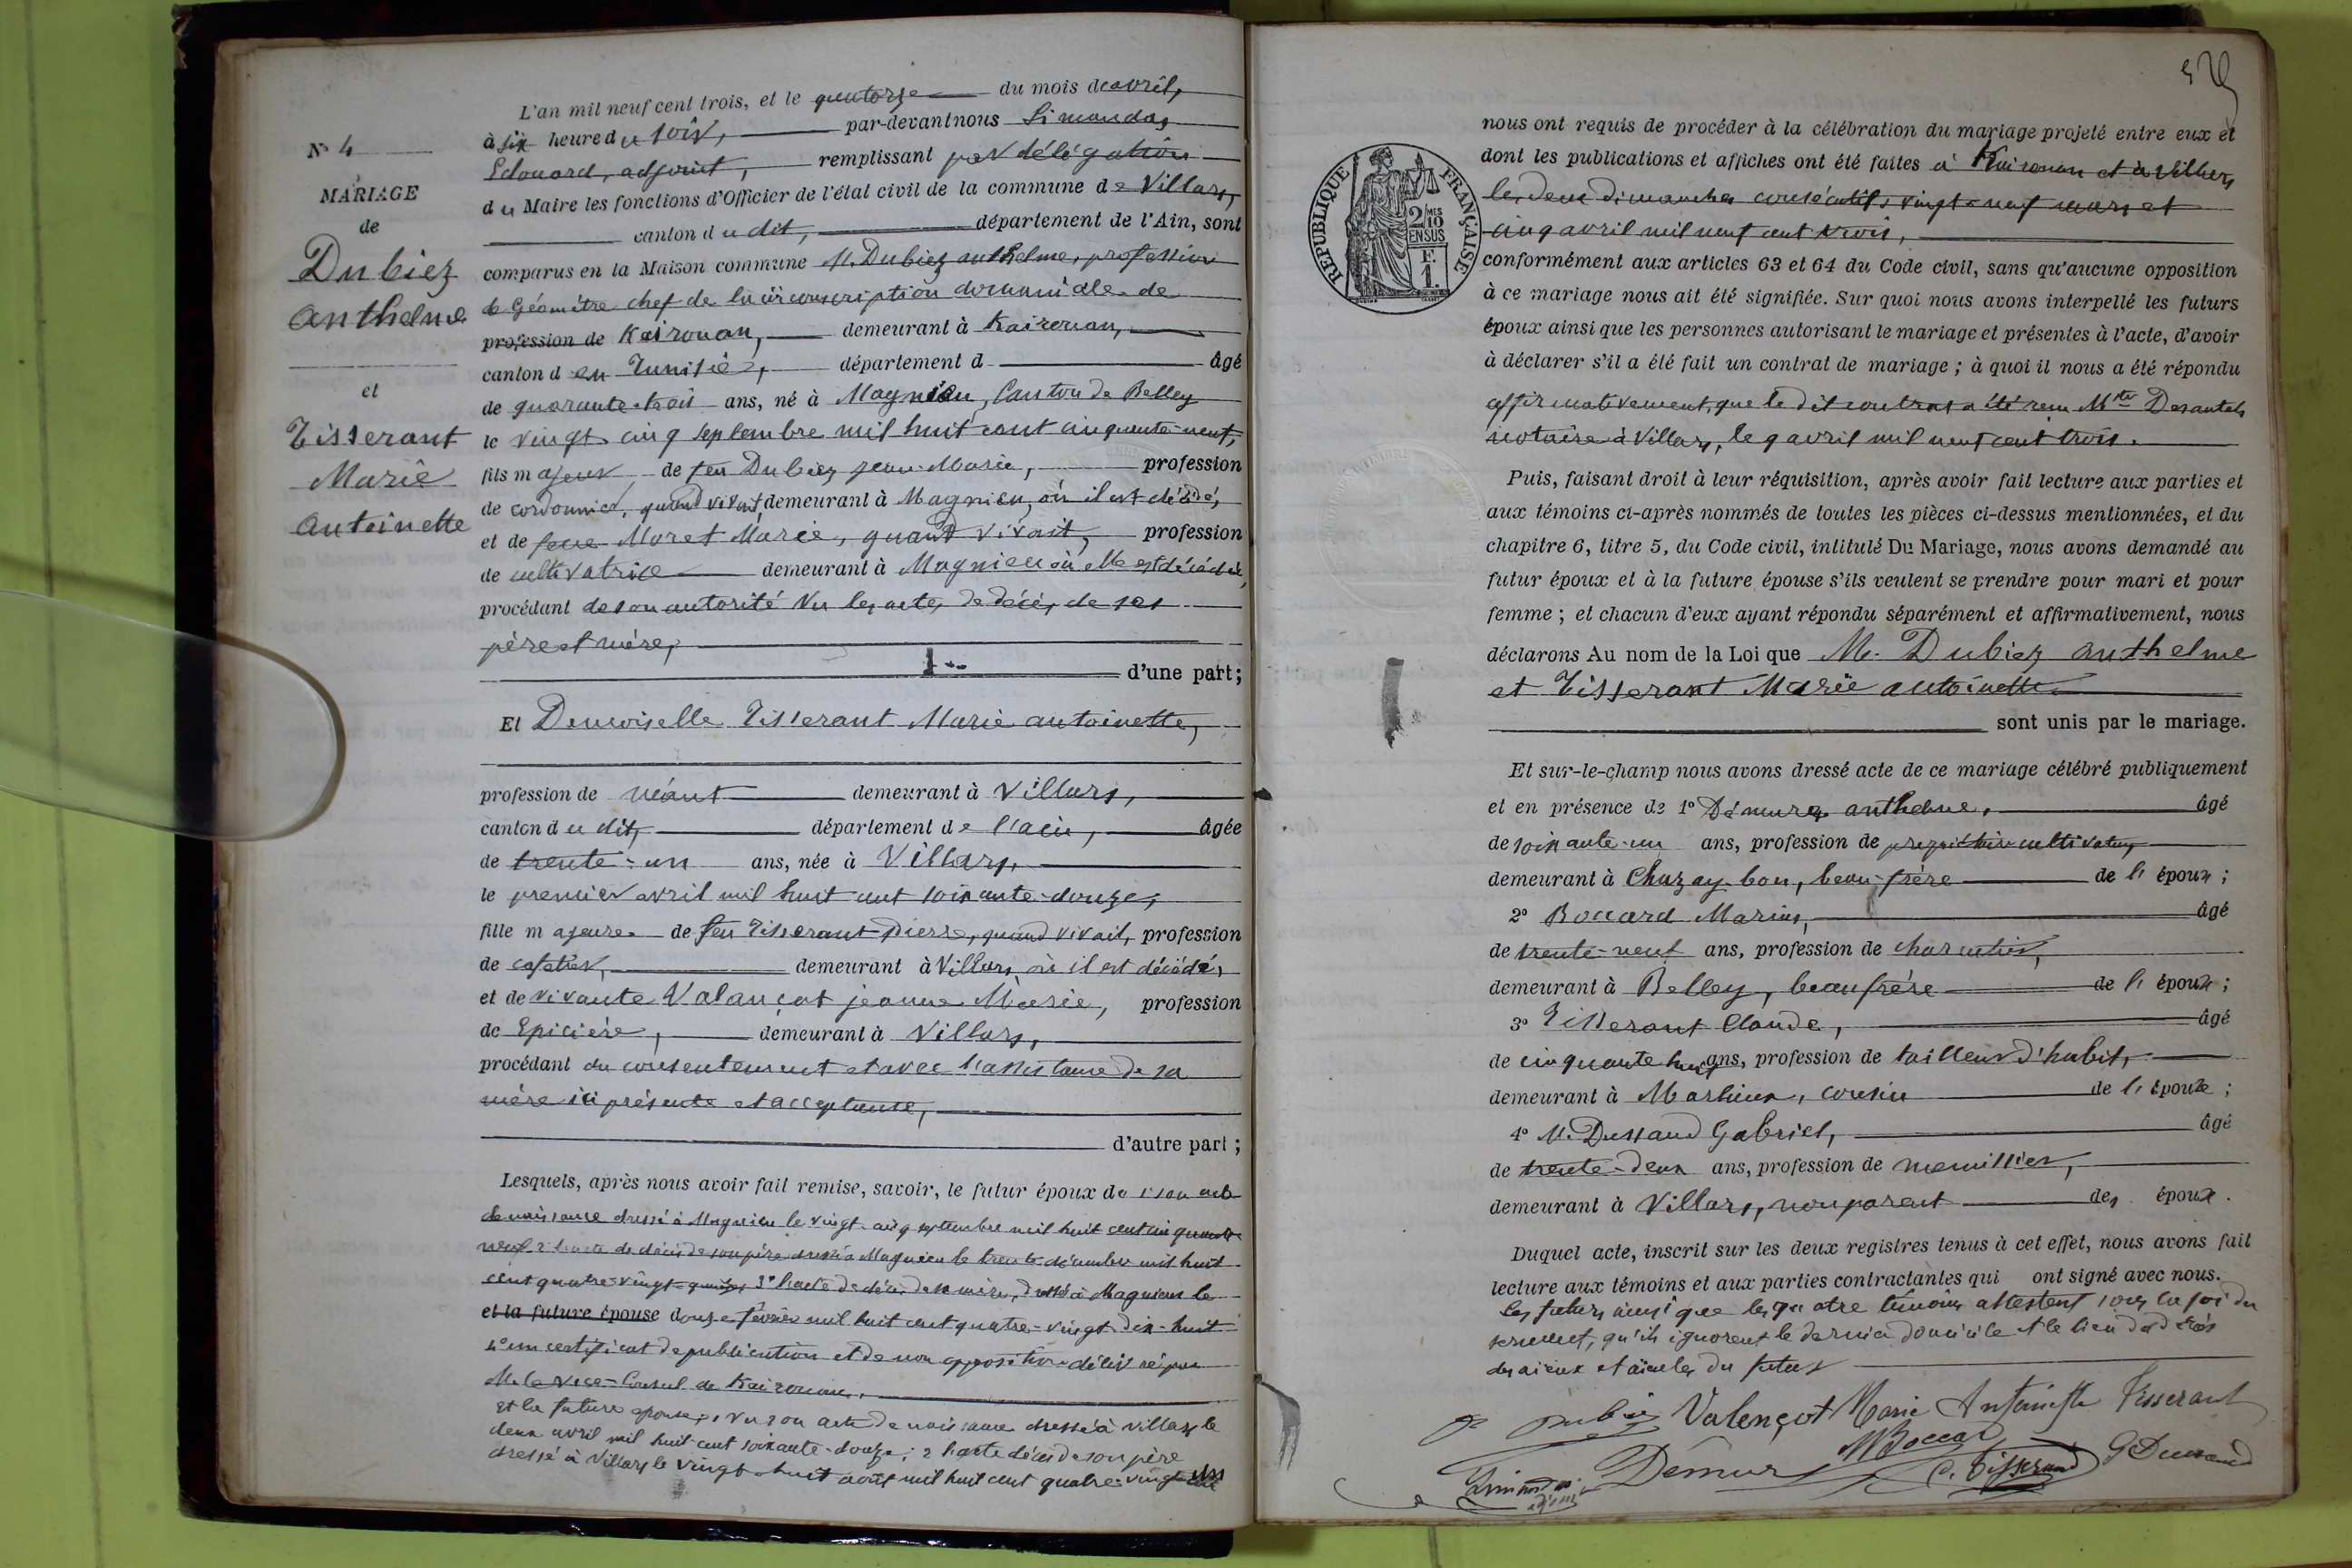 N° 4
MARIAGE
de
Dubiez
Anthelme
et
Tisserant
Marie
Antoinette
L'an mil neuf cent trois, et le quatorze du mois de avril,
à six heure du soir, par-devant nous Simandas
Edouard, adjoint, remplissant par délégation
du Maire les fonctions d'Officier de l'état civil de la commune de Villars,
canton du dit, département de l'Ain, sont
comparus en la Maison commune M. Dubiez anthelme, profession
de Géomètre chef de la circonscription domaniale de
profession de Kairouan, demeurant à Kairouan,
canton d en Tunisie, département d âgé
de quarante-trois ans, né à Magnieu, Canton de Belley
le vingt cinq septembre mil huit cent cinquante-neuf,
fils majeur de feu Dubiez jean-Marie, profession
de cordonnier, quand vivait, demeurant à Magnieu, où il est décédé,
et de feue Moret Marie, quand vivait, profession
de cultivatrice demeurant à Magnieu où elle est décédée,
procédant de son autorité Vu les actes de décès de ses
père et mère,
d'une part;
Et Demoiselle Tisserant Marie antoinette,
profession de néant demeurant à Villars,
canton du dit, département de l'ain, âgée
de trente-un ans, née à Villars,
le premier avril mil huit cent soixante-douze,
fille majeure de feu Tisserant Pierre, quand vivait, profession
de cafetier, demeurant à Villars, où il est décédé,
et de vivante Valançot jeanne Marie, profession
de Epicière, demeurant à Villars,
procédant du consentement et avec l'assistance de sa
mère ici présente et acceptante,
d'autre part;
Lesquels, après nous avoir fait remise, savoir, le futur époux de 1° son acte
de naissance dressé à Magnieu le vingt-cinq septembre mil huit cent cinquante
neuf 2° l'acte de décès de son père dressé à Magnieu le trente décembre mil huit
cent quatre-vingt-quinze, 3° l'acte de décès de sa mère, dressé à Magnieu le
et la future épouse douze février mil huit cent quatre-vingt-dix-huit
4° un certificat de publication et de non opposition délivré par
M. le Vice-Consul de Kairouan,
Et la future épouse, 1° Vu son acte de naissance dressé à Villars le
deux avril mil huit cent soixante-douze; 2° l'acte décès de son père
dressé à Villars le vingt-huit août mil huit cent quatre-vingt
REPUBLIQUE FRANÇAISE
2 MES
10
EN SUS
F.
1.
nous ont requis de procéder à la célébration du mariage projeté entre eux et
dont les publications et affiches ont été faites à Kairouan et à Villars
les deux dimanches consécutifs, vingt-neuf mars et
cinq avril mil neuf cent trois,
conformément aux articles 63 et 64 du Code civil, sans qu'aucune opposition
à ce mariage nous ait été signifiée. Sur quoi nous avons interpellé les futurs
époux ainsi que les personnes autorisant le mariage et présentes à l'acte, d'avoir
à déclarer s'il a été fait un contrat de mariage ; à quoi il nous a été répondu
affirmativement, que le dit contrat a été reçu Mtre Desautels
notaire à Villars, le 9 avril mil neuf cent trois.
Puis, faisant droit à leur réquisition, après avoir fait lecture aux parties et
aux témoins ci-après nommés de toutes les pièces ci-dessus mentionnées, et du
chapitre 6, titre 5, du Code civil, intitulé Du Mariage, nous avons demandé au
futur époux et à la future épouse s'ils veulent se prendre pour mari et pour
femme ; et chacun d'eux ayant répondu séparément et affirmativement, nous
déclarons Au nom de la Loi que M. Dubiez anthelme
et Tisserant Marie antoinette
sont unis par le mariage.
Et sur-le-champ nous avons dressé acte de ce mariage célébré publiquement
et en présence de 1° Démurg anthelme, âgé
de soixante-un ans, profession de propriétaire cultivateur,
demeurant à Chazay-bon, beau-frère de l'époux ;
2° Boccard Marius, âgé
de trente-neuf ans, profession de charcutier,
demeurant à Belley, beau frère de l'époux ;
3° Tisserant Claude, âgé
de cinquante huit ans, profession de tailleur d'habit,
demeurant à Marlieux, cousin de l'épouse ;
4° M. Dussaud Gabriel, âgé
de trente-deux ans, profession de menuisier,
demeurant à Villars, non parent des époux.
Duquel acte, inscrit sur les deux registres tenus à cet effet, nous avons fait
lecture aux témoins et aux parties contractantes qui ont signé avec nous.
Les futurs ainsi que les quatre témoins attestent sous la foi du
serment, qu'ils ignorent le dernier domicile et le lieu de décès
des aïeux et aïeules du futur
Dubiez Valençot Marie Antoinette Tisserant
M Boccard
Simandas Démur C. Tisserand G Dussaud
adjoint